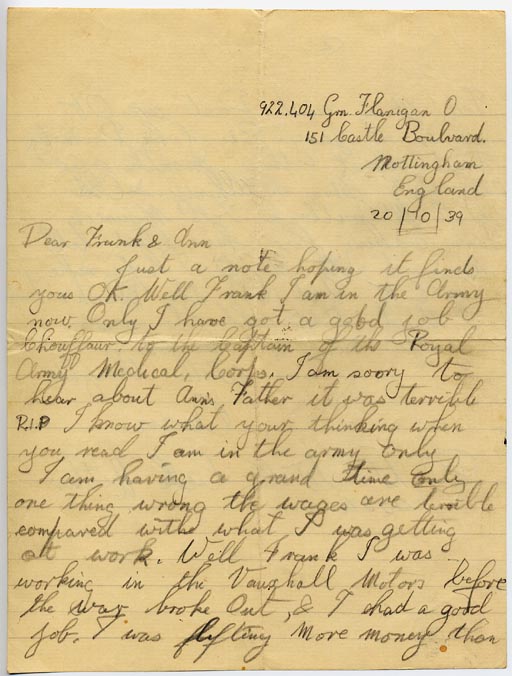 922,404 Gnr. Flanigan O
151 Castle Boulvard.
Nottingham
England
20/10/39
Dear Frank & Ann
Just a note hoping it finds
yous OK. Well Frank I am in the Army
now. Only I have got a good job
Chouffaur. to the Captain of the Royal
Army Medical, Corps. I am soory to
hear about Anns Father it was terrible
R.I.P I know what your thinking when
you read I am in the army only
I am having a grand time only
one thing wrong the wages are terrible
compared withe what I was getting
at work. Well Frank I was
working in the Vauxhall Motors before
the war broke Out, & I had a good
job. I was More money than